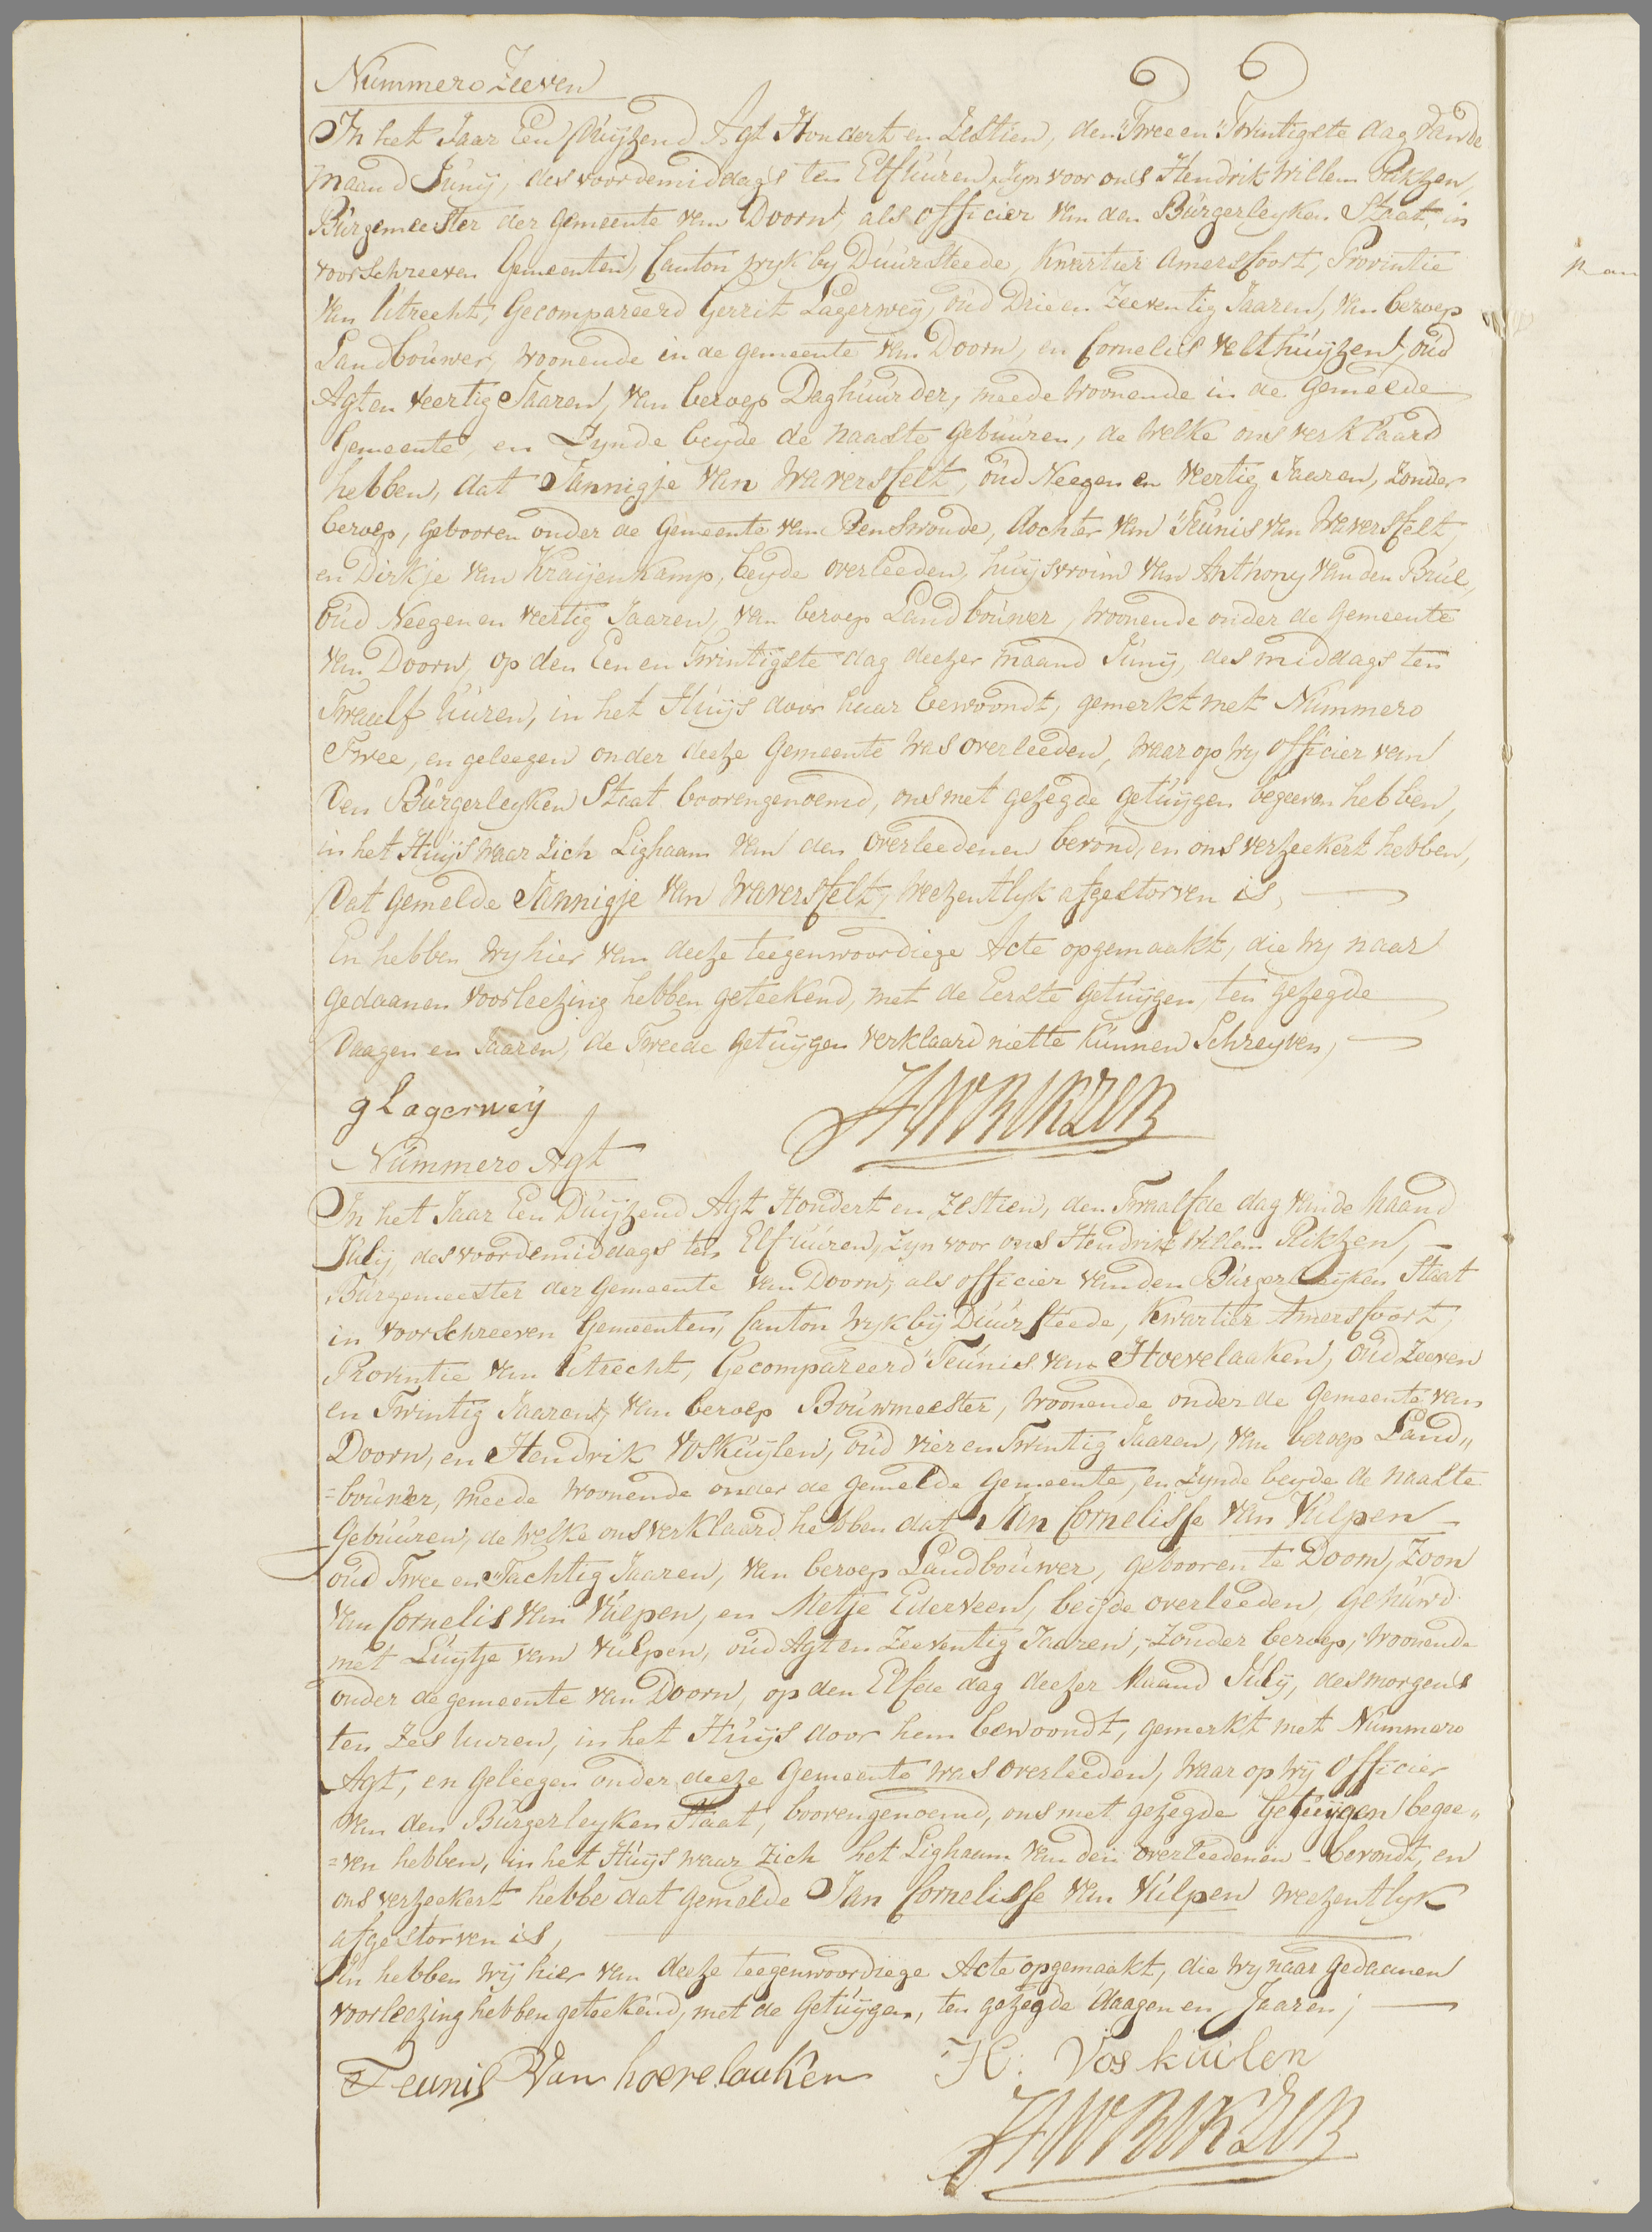 Nummero Zeeven
In het Jaar Een Duijzend Agt Hondert en Zestien, den Twee en Twintigste dag van de
maand Junij, des voordemiddags ten Elf uuren, Zyn voor ons Hendrik Willem Rikzen,
Burgemeester der Gemeente van Doorn, als officier van den Burgerleyken Staat, in
voorschreeven Gemeenten, Canton Wyk by Duursteede, Kwartier Amersfoort, Provintie
van Utrecht, Gecompareerd Gerrit Lagerweij, oud Drie en Zeeventig Jaaren, van beroep
Landbouwer, woonende in de gemeente van Doorn, en Cornelis Velthuijzen, oud
Agt en veertig Jaaren, van beroep Daghuurder, meede woonende in de gemelde
Gemeente, en Zynde beyde de naaste gebuuren, de welke ons verklaard
hebben, dat Jannigje van Waversfelt, oud Neegen en veertig Jaaren, zonder
beroep, gebooren onder de Gemeente van Renswoude, dochter van Teunis van Waversfelt,
en Dirkje van Kraijenkamp, beyde overleeden, huijsvrouw van Anthony van den Brul,
oud Neegen en veertig Jaaren, van beroep Landbouwer, woonende onder de Gemeente
van Doorn, op den Een en Twintigste dag deezer maand Junij, des middags ten
Twaalf uuren, in het Huijs door haar bewoondt, gemerkt met Nummero
Twee, en geleegen onder deeze Gemeente was overleeden, waar op wy officier van
den Burgerleyken Staat boovengenoemd, ons met gezegde getuijgen begeeven hebben,
in het Huijs waar zich Lighaam van den overleedenen bevond, en ons verzeekert hebben,
Dat gemelde Jannigje van Waversfelt, weezentlyk afgestorven is,
En hebben wy hier van deeze teegenwoordiege Acte opgemaakt, die wy naar
gedaanen voorleezing hebben geteekend, met de Eerste getuijgen, ten gezegde
daagen en Jaaren, de Tweede getuijgen verklaard niet te kunnen Schreyven,
g Lagerweij HWRikzen
Nummero Agt
In het Jaar Een Duijzend Agt Hondert en Zestien, den Twaalfde dag van de Maand
Julij, des voordemiddags ten Elf uuren, Zyn voor ons Hendrik Willem Rikzen,
Burgemeester der Gemeente van Doorn, als officier van den Burgerleijken Staat
in voorschreeven Gemeenten, Canton Wyk bij Duursteede, Kwartier Amersfoort,
Provintie van Utrecht, Gecompareerd Teunis van Hoevelaaken, oud Zeeven
en Twintig Jaaren, van beroep Bouwmeester, woonende onder de Gemeente van
Doorn, en Hendrik Voskuijlen, oud vier en Twintig Jaaren, van beroep Land„
=bouwer, meede woonende onder de gemelde gemeente, en Zynde beyde de naaste
Gebuuren, de welke ons verklaard hebben dat Jan Cornelisse van Vulpen
oud Twee en Tachtig Jaaren, van beroep Landbouwer, gebooren te Doorn, Zoon
van Cornelis van Vulpen, en Metje Ederveen, beijde overleeden, gehuwd
met Luijtje van Vulpen, oud Agt en Zeeventig Jaaren, Zonder beroep, woonende
onder de gemeente van Doorn, op den Elfde dag deezer Maand Julij, des morgens
ten Zes uuren, in het Huijs door hem bewoondt, gemerkt met Nummero
Agt, en geleegen onder deeze Gemeente was overleeden, waar op wij officier
van den Burgerleyken Staat, boovengenoemd, ons met gezegde Getuijgen begee„
=ven hebben, in het Huijs waar zich het Lighaam van den overleedenen bevondt, en
ons verzeekert hebbe dat gemelde Jan Cornelisse van Vulpen weezentlyk
afgestorven is,
En hebben wij hier van deeze teegenwoordiege Acte opgemaakt, die wy naar gedaanen
voorleezing hebben geteekend, met de Getuijgen, ten gezegde daagen en Jaaren,
Teunis Van hoevelaaken H: Voskuilen
HWRikzen